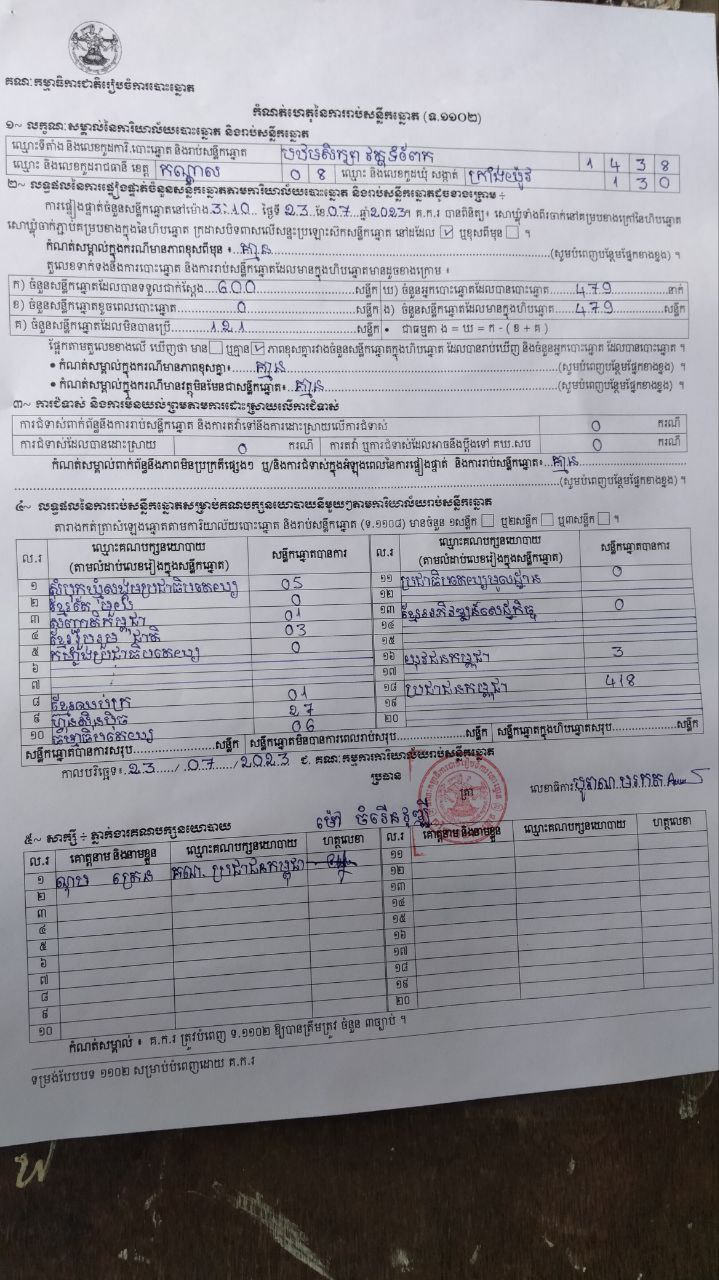 គណៈកម្មាធិការជាតិរៀបចំការបោះឆ្នោត
កំណត់ហេតុនៃការរាប់សន្លឹកឆ្នោត (ទ.១១០២)
១~ លក្ខណៈសម្គាល់នៃការិយាល័យបោះឆ្នោត និងរាប់សន្លឹកឆ្នោត
ឈ្មោះទីតាំង និងលេខកូដការិ.បោះឆ្នោត និងរាប់សន្លឹកឆ្នោត បឋមសិក្សា វត្តទំពែក 1 4 3 8
ឈ្មោះ និងលេខកូដរាជធានី ខេត្ត កណ្តាល 0 8 ឈ្មោះ និងលេខកូដឃុំ សង្កាត់ ក្រាំងយ៉ូវ 1 3 0
២~ លទ្ធផលនៃការផ្ទៀងផ្ទាត់ចំនួនសន្លឹកឆ្នោតតាមការិយាល័យបោះឆ្នោត និងរាប់សន្លឹកឆ្នោតដូចខាងក្រោម ៖
ការផ្ទៀងផ្ទាត់ចំនួនសន្លឹកឆ្នោតនៅម៉ោង 3:10 ថ្ងៃទី 23 ខែ 07 ឆ្នាំ 2023។ គ.ក.រ បានពិនិត្យ៖ សោឃ្នុំទាំងពីរចាក់នៅគម្របខាងក្រៅនៃហិបឆ្នោត
សោឃ្នុំចាក់ភ្ជាប់គម្របខាងក្នុងនៃហិបឆ្នោត ក្រដាសបិទពាសលើសន្ទះប្រឡោះសិកសន្លឹកឆ្នោត នៅដដែល ☑ ឬខុសពីមុន ☐ ។
កំណត់សម្គាល់ក្នុងករណីមានភាពខុសពីមុន ៖ គ្មាន (សូមបំពេញបន្ថែមផ្នែកខាងខ្នង) ។
តួលេខទាក់ទងនឹងការបោះឆ្នោត និងការរាប់សន្លឹកឆ្នោតដែលមានក្នុងហិបឆ្នោតមានដូចខាងក្រោម ៖
ក) ចំនួនសន្លឹកឆ្នោតដែលបានទទួលជាក់ស្តែង 600 សន្លឹក ឃ) ចំនួនអ្នកបោះឆ្នោតដែលបានបោះឆ្នោត 479 នាក់
ខ) ចំនួនសន្លឹកឆ្នោតខូចពេលបោះឆ្នោត 0 សន្លឹក ង) ចំនួនសន្លឹកឆ្នោតដែលមានក្នុងហិបឆ្នោត 479 សន្លឹក
គ) ចំនួនសន្លឹកឆ្នោតដែលមិនបានប្រើ 121 សន្លឹក • ជាធម្មតា ង = ឃ = ក - (ខ + គ)
ផ្អែកតាមតួលេខខាងលើ ឃើញថា មាន ☐ ឬគ្មាន ☑ ភាពខុសគ្នារវាងចំនួនសន្លឹកឆ្នោតក្នុងហិបឆ្នោត ដែលបានរាប់ឃើញ និងចំនួនអ្នកបោះឆ្នោត ដែលបានបោះឆ្នោត ។
• កំណត់សម្គាល់ក្នុងករណីមានភាពខុសគ្នា៖ គ្មាន (សូមបំពេញបន្ថែមផ្នែកខាងខ្នង) ។
• កំណត់សម្គាល់ក្នុងករណីមានវត្ថុមិនមែនជាសន្លឹកឆ្នោត៖ គ្មាន (សូមបំពេញបន្ថែមផ្នែកខាងខ្នង) ។
៣~ ការជំទាស់ និងការមិនយល់ព្រមតាមការដោះស្រាយលើការជំទាស់
ការជំទាស់ពាក់ព័ន្ធនឹងការរាប់សន្លឹកឆ្នោត និងការតវ៉ាទៅនឹងការដោះស្រាយលើការជំទាស់ 0 ករណី
ការជំទាស់ដែលបានដោះស្រាយ 0 ករណី ការតវ៉ា ឬការជំទាស់ដែលអាចនឹងប្តឹងទៅ គឃ.សប 0 ករណី
កំណត់សម្គាល់ពាក់ព័ន្ធនឹងភាពមិនប្រក្រតីផ្សេងៗ ឬ/និងការជំទាស់ក្នុងអំឡុងពេលនៃការផ្ទៀងផ្ទាត់ និងការរាប់សន្លឹកឆ្នោត៖ គ្មាន
(សូមបំពេញបន្ថែមផ្នែកខាងខ្នង) ។
៤~ លទ្ធផលនៃការរាប់សន្លឹកឆ្នោតសម្រាប់គណបក្សនយោបាយនីមួយៗតាមការិយាល័យរាប់សន្លឹកឆ្នោត
តារាងកត់ត្រាសំឡេងឆ្នោតតាមការិយាល័យបោះឆ្នោត និងរាប់សន្លឹកឆ្នោត (ទ.១១០៨) មានចំនួន ១សន្លឹក ☐ ឬ២សន្លឹក ☐ ឬ៣សន្លឹក ☐ ។
ល.រ ឈ្មោះគណបក្សនយោបាយ (តាមលំដាប់លេខរៀងក្នុងសន្លឹកឆ្នោត) សន្លឹកឆ្នោតបានការ ល.រ ឈ្មោះគណបក្សនយោបាយ (តាមលំដាប់លេខរៀងក្នុងសន្លឹកឆ្នោត) សន្លឹកឆ្នោតបានការ
១ សំបុកឃ្មុំសង្គមប្រជាធិបតេយ្យ 05 ១១ ប្រជាធិបតេយ្យមូលដ្ឋាន 0
២ ខ្មែរតែមួយ 0 ១២
៣ សញ្ជាតិកម្ពុជា 01 ១៣ ខ្មែរអភិវឌ្ឍន៍សេដ្ឋកិច្ច 0
៤ ខ្មែររួបរួមជាតិ 03 ១៤
៥ កម្លាំងប្រជាធិបតេយ្យ 0 ១៥
៦ ១៦ យុវជនកម្ពុជា 3
៧ ១៧
៨ ខ្មែរឈប់ក្រ 01 ១៨ ប្រជាជនកម្ពុជា 418
៩ ហ៊្វុនស៊ិនប៉ិច 27 ១៩
១០ ធម្មាធិបតេយ្យ 06 ២០
សន្លឹកឆ្នោតបានការសរុប សន្លឹក សន្លឹកឆ្នោតមិនបានការពេលរាប់សរុប សន្លឹក សន្លឹកឆ្នោតក្នុងហិបឆ្នោតសរុប សន្លឹក
កាលបរិច្ឆេទ៖ 23 / 07 / 2023 ជ. គណៈកម្មការការិយាល័យរាប់សន្លឹកឆ្នោត
ប្រធាន
ត្រា
លេខាធិការ
ម៉ៅ ចំរើនវុឌ្ឍី
៥~ សាក្សី ៖ ភ្នាក់ងារគណបក្សនយោបាយ
ល.រ គោត្តនាម និងនាមខ្លួន ឈ្មោះគណបក្សនយោបាយ ហត្ថលេខា ល.រ គោត្តនាម និងនាមខ្លួន ឈ្មោះគណបក្សនយោបាយ ហត្ថលេខា
១ ណុប គណ. ប្រជាជនកម្ពុជា ១១
២ ១២
៣ ១៣
៤ ១៤
៥ ១៥
៦ ១៦
៧ ១៧
៨ ១៨
៩ ១៩
១០ ២០
កំណត់សម្គាល់ ៖ គ.ក.រ ត្រូវបំពេញ ទ.១១០២ ឱ្យបានត្រឹមត្រូវ ចំនួន ៣ច្បាប់ ។
ទម្រង់បែបបទ ១១០២ សម្រាប់បំពេញដោយ គ.ក.រ